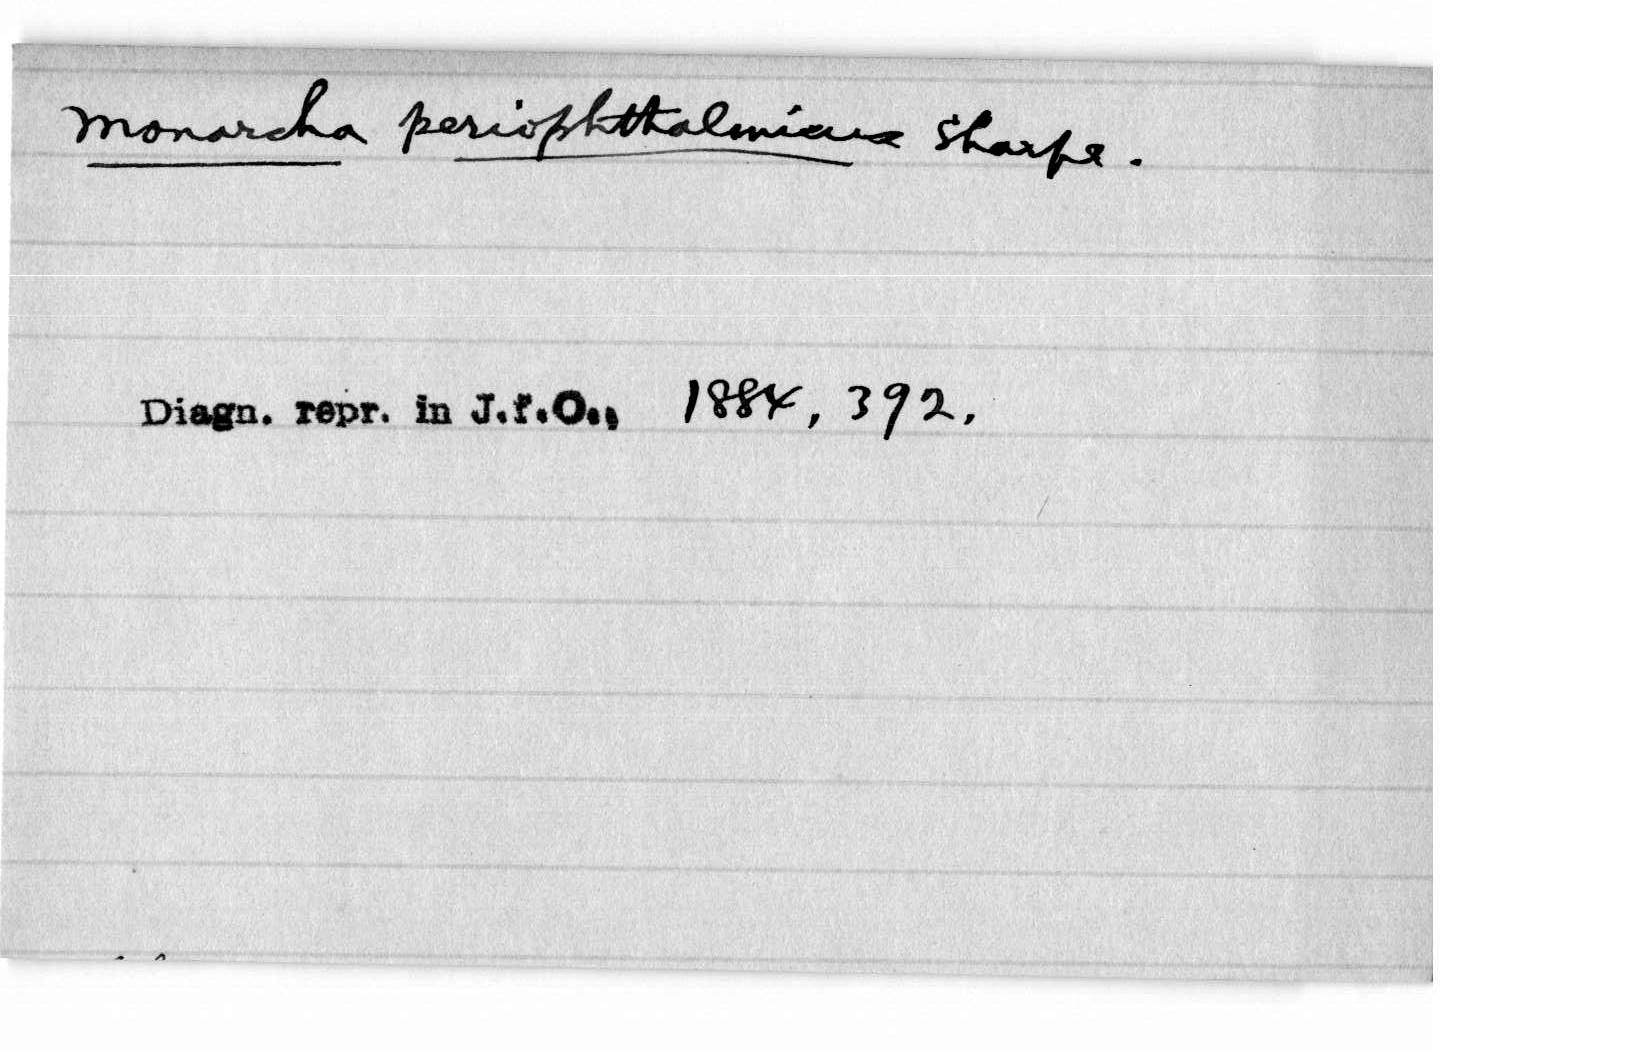 Monarcha periophthalmicus Sharpe.
Diagn. repr. in J.f.O., 1884, 392.